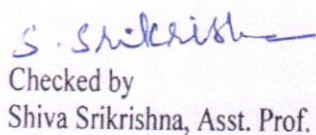 S. Srikrishna
Checked by
Shiva Srikrishna, Asst. Prof.